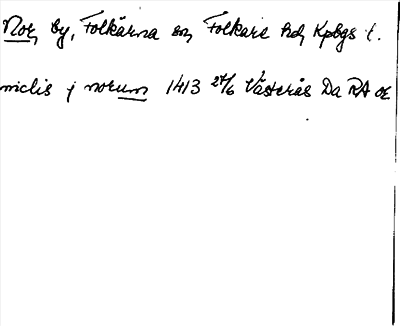 Nor, by, Folkärna sn, Folkare hd, Kpbgs l.
niclis j norum 1413 24/6 Västerås Da RA or